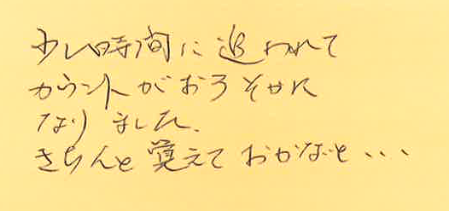 少し時間に追われて
カウントがおろそかに
なりました.
きちんと覚えておかなと・・・